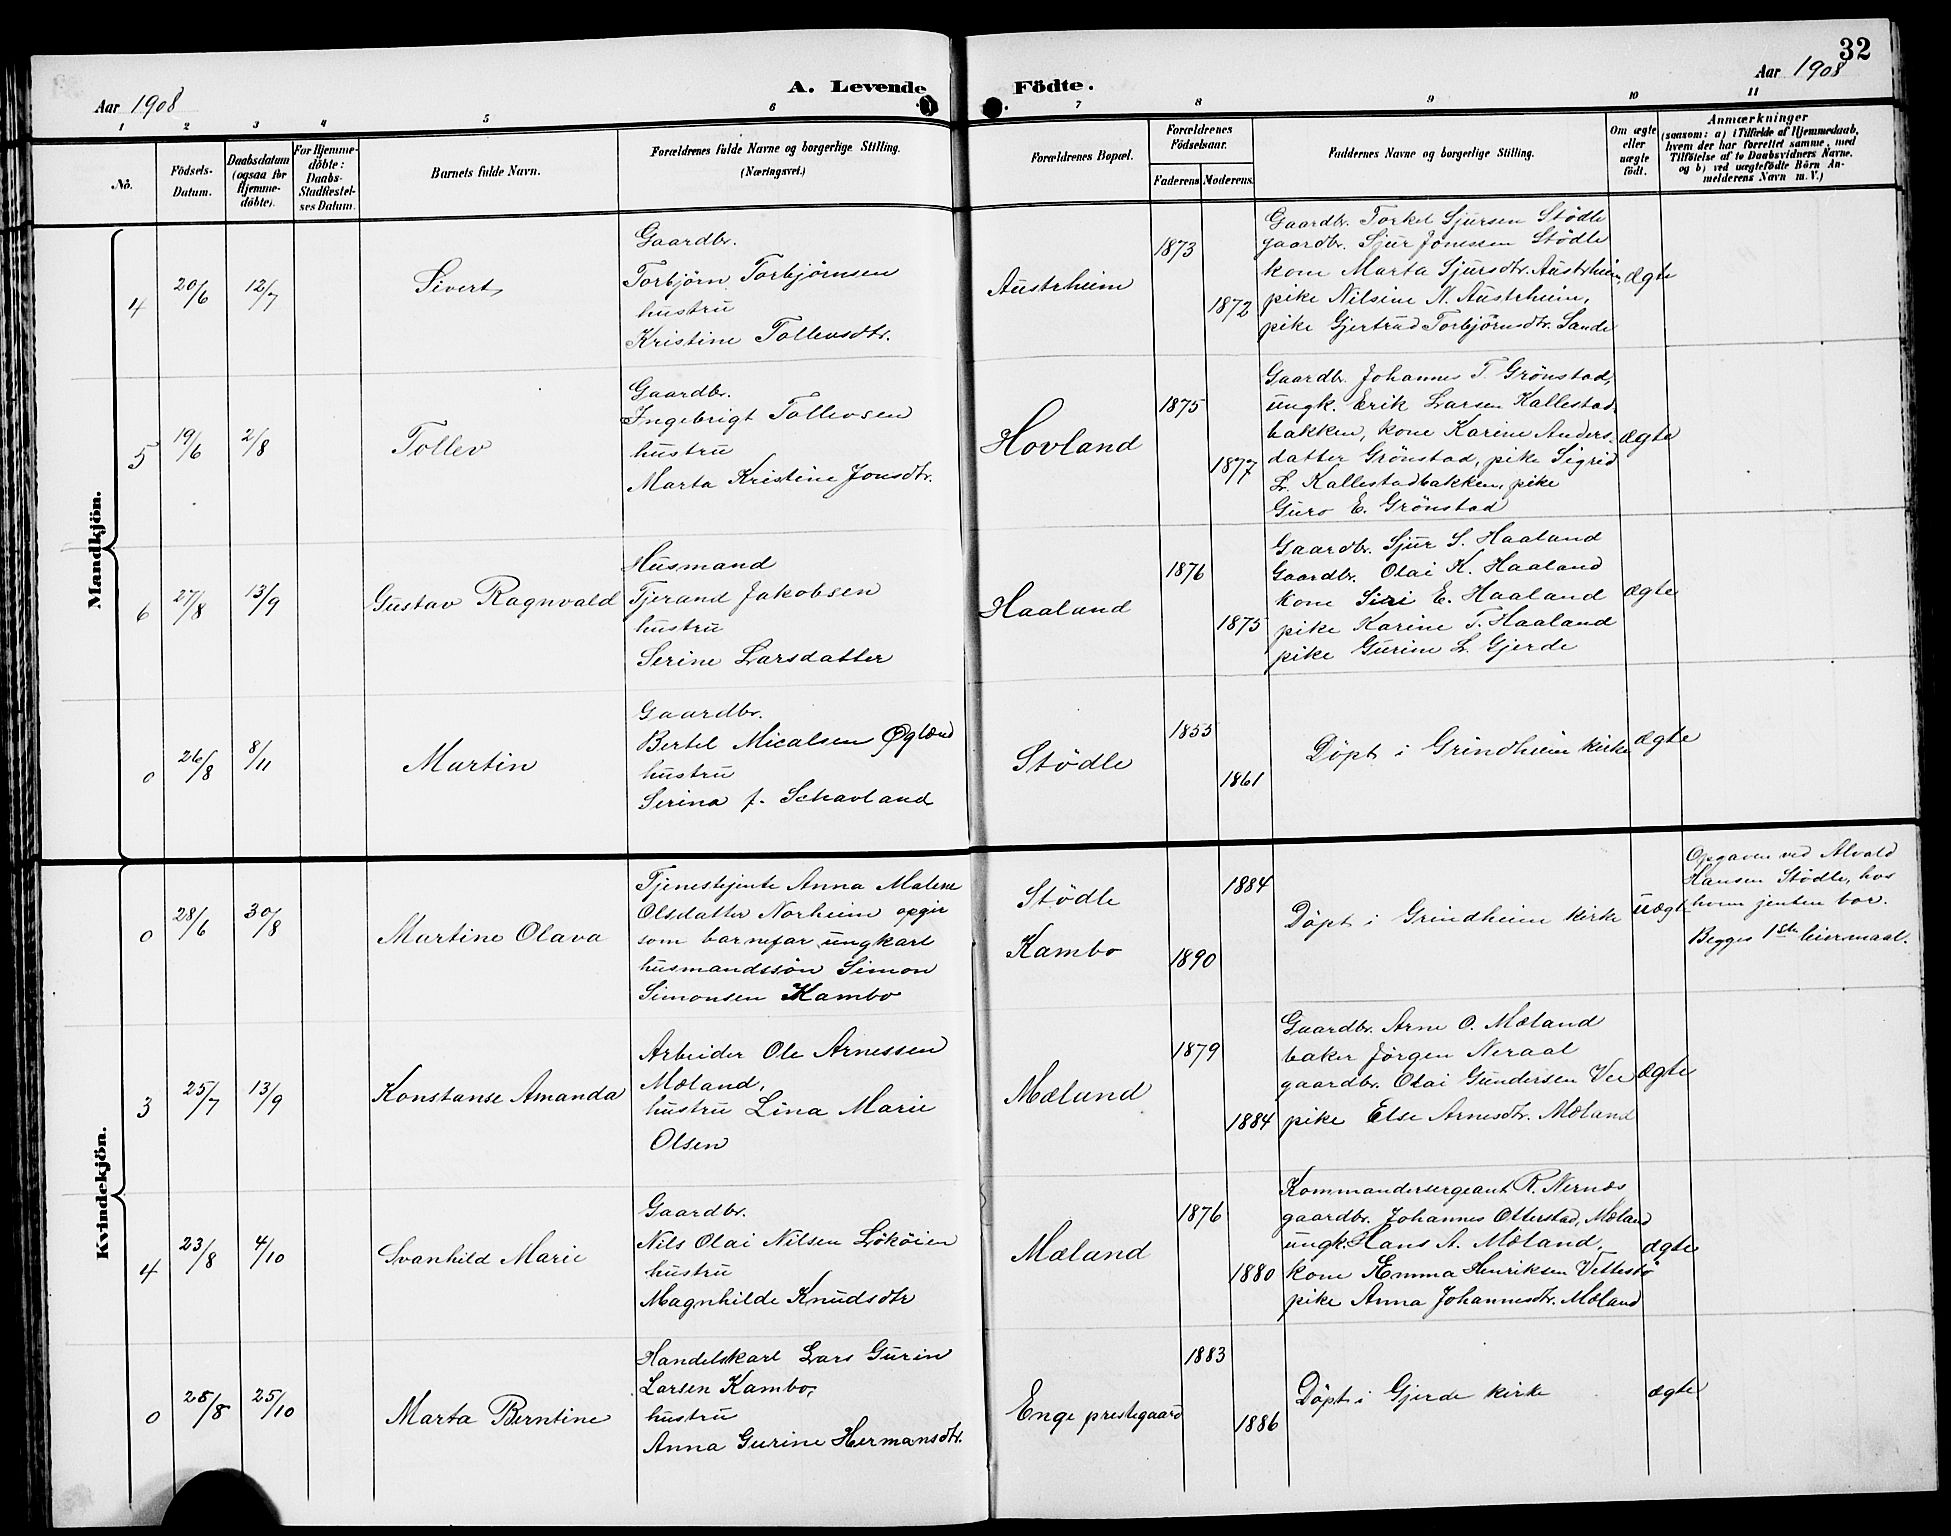 32
Aar 1908
A. Levende Födte.
Aar 1908
1 2 3 4 5 6 7 8 9 10 11
No.
Födsels-
Datum.
Daabsdatum
(ogsaa for
Hjemme-
döbte).
For Hjemme-
döbte:
Daabs-
Stadfæstel-
ses Datum.
Barnets fulde Navn.
Forældrenes fulde Navne og borgerlige Stilling.
(Næringsvei.)
Forældrenes Bopæl.
Forældrenes
Födselsaar.
Faderens. Moderens.
Faddernes Navne og borgerlige Stilling.
Om ægte
eller
uægte
födt.
Anmærkninger
(saasom: a) i Tilfælde af Hjemmedaab,
hvem der har forrettet samme, med
Tilföielse af to Daabsvidners Navne.
og b) ved uægtefödte Börn An-
melderens Navn m. V.)
Mandkjön.
4 20/6 12/7 Sivert
Gaardbr.
Torbjörn Torbjörnsen
hustru
Kristine Tollevsdtr.
Austrheim
1873
1872
Gaardbr. Torkel Sjursen Stödle
gaardbr. Sjur Jonessen Stödle
kone Marta Sjursdtr. Austrheim,
pike Nilsine N. Austrheim,
pike Gjertrud Torbjörnsdtr. Sande
ægte
5 19/6 2/8 Tollev
Gaardbr.
Ingebrigt Tollevsen
hustru
Marta Kristine Jonsdtr.
Hovland
1875
1877
Gaardbr. Johannes T. Grönstad,
ungk. Erik Larsen Kallestad-
bakken, kone Karine Anders-
datter Grönstad, pike Sigrid
L. Kallestadbakken, pike
Guro E. Grönstad
ægte
6 27/8 13/9 Gustav Ragnvald
Husmand
Tjerand Jakobsen
hustru
Serine Larsdatter
Haaland
1876
1875
Gaardbr. Sjur S. Haaland
Gaardbr. Olai K. Haaland
kone Siri E. Haaland
pike Karine T. Haaland
pike Gurine L. Gjerde
ægte
0 26/8 8/11 Martin
Gaardbr.
Bertel Micalsen Öglænd
hustru
Serina f. Schavland
Stödle
1855
1861
Döpt i Grindheim kirke
ægte
Kvindekjön.
0 28/6 30/8 Martine Olava
Tjenestejente Anna Malene
Olsdatter Norheim opgir
som barnefar ungkarl
husmandssön Simon
Simonsen Kambo
Stödle
Kambo
1884
1890
Döpt i Grindheim kirke
uægte
Opgaven ved Alvald
Hansen Stödle, hos
hvem jenten bor.
Begges 1ste leiermaal.
3 25/7 13/9 Konstanse Amanda
Arbeider Ole Arnessen
Mæland,
hustru Lina Marie
Olsen
Mæland
1879
1884
Gaardbr. Arne O. Mæland
baker Jörgen Neraal
gaardbr. Olai Gundersen Vee
pike Else Arnesdtr. Mæland
ægte
4 23/8 4/10 Svanhild Marie
Gaardbr.
Nils Olai Nilsen Lököien
hustru
Magnhilde Knudsdtr
Mæland
1876
1880
Kommandersergeant R. Nernæs
gaardbr. Johannes Otterstad, Mæland
ungk. Hans A. Mæland,
kone Emma Henriksen Vettestö
pike Anna Johannesdtr. Mæland
ægte
0 25/8 25/10 Marta Berntine
Handelskarl Lars Gurin
Larsen Kambo,
hustru
Anna Gurine Hermansdtr.
Enge prestegaard
1883
1886
Döpt i Gjerde kirke
ægte